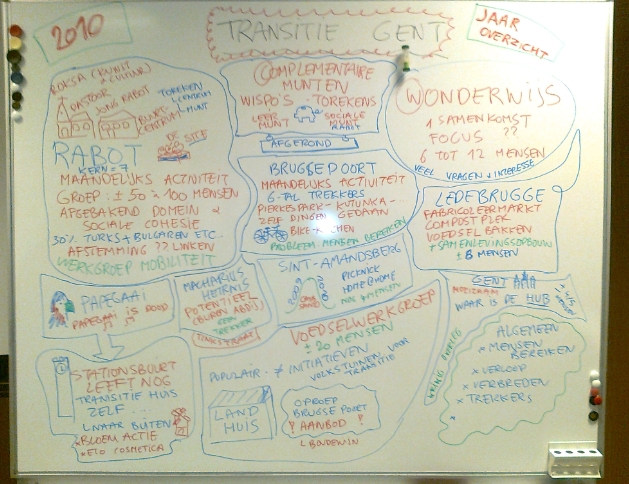 2010
TRANSITIE GENT
JAAR
OVERZICHT
PASTOOR
JONG RABOT
BUURT-
CENTRUM
TOREKEN
CENTRUM
MUNT
DE
SITE
RABOT
KERN = 7
MAANDELIJKS ACTIVITEIT
GROEP: ± 50 à 100 MENSEN
AFGEBAKEND DOMEIN &
SOCIALE COHESIE
30% TURKS + BULGAREN ETC..
AFSTEMMING ?? LINKEN
WERKGROEP MOBILITEIT
COMPLEMENTAIRE
MUNTEN
WISPO'S - TOREKENS
LEER
MUNT
SOCIALE
MUNT
RABOT
AFGEROND
WONDERWIJS
1 SAMENKOMST
FOCUS ??
6 TOT 12 MENSEN
VEEL VRAGEN + INTERESSE
BRUGSEPOORT
MAANDELIJKS ACTIVITEIT
6-TAL TREKKERS
PIERKESPARK - KUTUNKA -
ZELF DINGEN GEDAAN
BIKE-KITCHEN
PROBLEEM: MENSEN BEREIKEN
LEDEBRUGGE
FABRICOLEERMARKT
COMPOST PLEK
VOEDSEL BAKKEN
+ SAMENLEVINGSOPBOUW
± 8 MENSEN
PAPEGAAI
PAPEGAAI IS DOOD
MACHARIUS
HEIRNIS
POTENTIEEL
(BUREN ABDIJ)
GEEN
TREKKER
SINT-AMANDSBERG
PICKNICK
HOME @ HOME
GENT
WAAR IS DE HUB
STATIONSBUURT
LEEFT NOG
TRANSITIE HUIS
ZELF...
NAAR BUITEN
* BLOEM ACTIE
* ETO COSMETICA
VOEDSELWERKGROEP
± 20 MENSEN
POPULAIR: ≠ INITIATIEVEN
VOLKSTUINEN VOOR
TRANSITIE
LAND
HUIS
OPROEP
BRUGSE POORT
? AANBOD !
ALGEMEEN
* MENSEN
BEREIKEN
* VERLOOP
* VERBREDEN
* TREKKERS
*